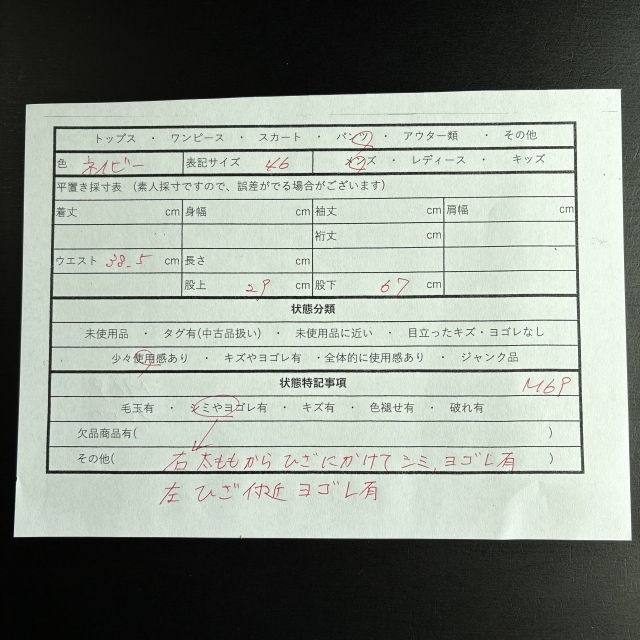 トップス ・ ワンピース ・ スカート ・ パンツ ・ アウター類 ・ その他
色 ネイビー 表記サイズ 46 メンズ ・ レディース ・ キッズ
平置き採寸表 (素人採寸ですので、誤差がでる場合がございます)
着丈 cm 身幅 cm 袖丈 cm 肩幅 cm
裄丈 cm
ウエスト 38.5 cm 長さ cm
股上 29 cm 股下 67 cm
状態分類
未使用品 ・ タグ有(中古品扱い) ・ 未使用品に近い ・ 目立ったキズ・ヨゴレなし
少々使用感あり ・ キズやヨゴレ有 ・全体的に使用感あり ・ ジャンク品
状態特記事項 M69
毛玉有 ・ シミやヨゴレ有 ・ キズ有 ・ 色褪せ有 ・ 破れ有
欠品商品有( )
その他( 右 太ももから ひざにかけて シミ、ヨゴレ有 )
左 ひざ付近 ヨゴレ有